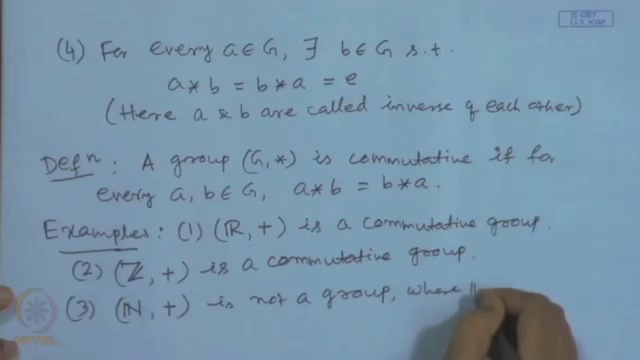 © CET
I.I.T. KGP
(4) For every a ∈ G, ∃ b ∈ G s.t.
a * b = b * a = e
(Here a & b are called inverse of each other)
Defⁿ : A group (G, *) is commutative if for
every a, b ∈ G, a * b = b * a.
Examples : (1) (ℝ, +) is a commutative group.
(2) (ℤ, +) is a commutative group.
(3) (ℕ, +) is not a group, where
NPTEL